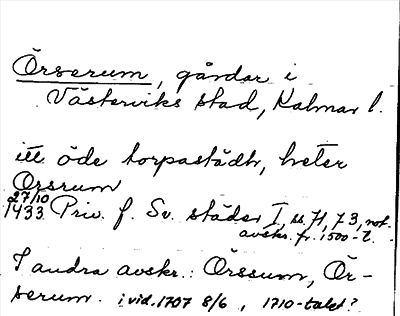 Örserum, gårdar i
Västerviks stad, Kalmar l.
itt öde torpastädh, heter
Orsrum
27/10
1433 Priv. f. Sv. städer I, ss. 71, 73, not.
avskr. fr. 1500-t.
I andra avskr.: Örssum, Ör-
serum. i vid. 1707 8/6, 1710-talet?